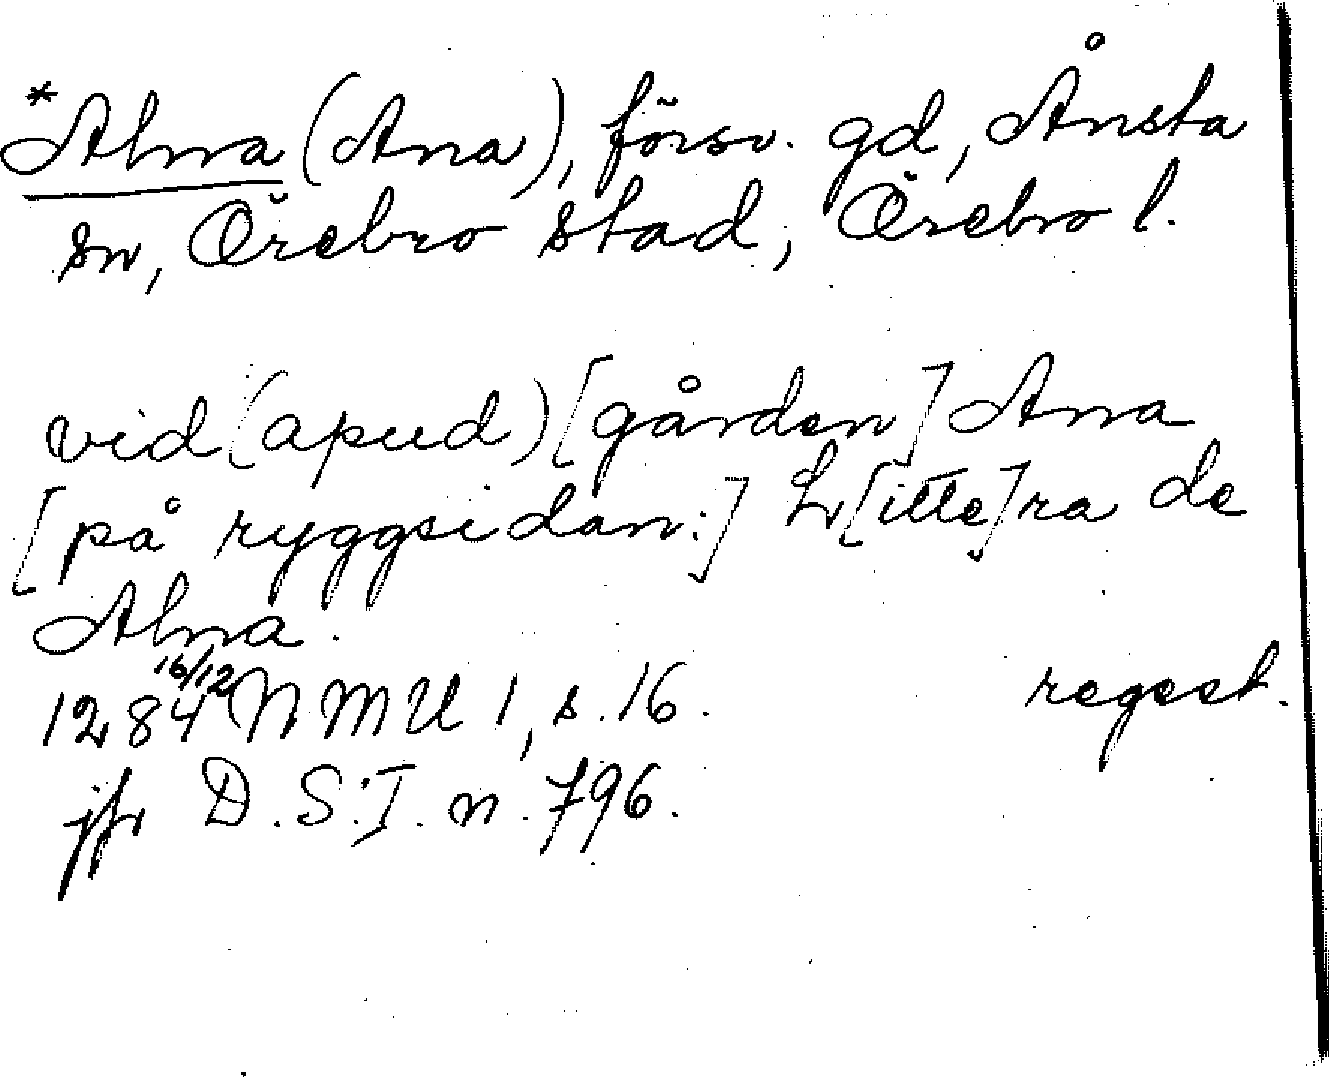 *Alma (Ana), försv. gd, Ånsta
sn, Örebro stad, Örebro l.
vid (apud) [gården] Ana
[på ryggsidan:] L[itte]ra de
Alma.
1284 16/12 NMU 1, s. 16. regest.
jfr D.S.I. n. 796.